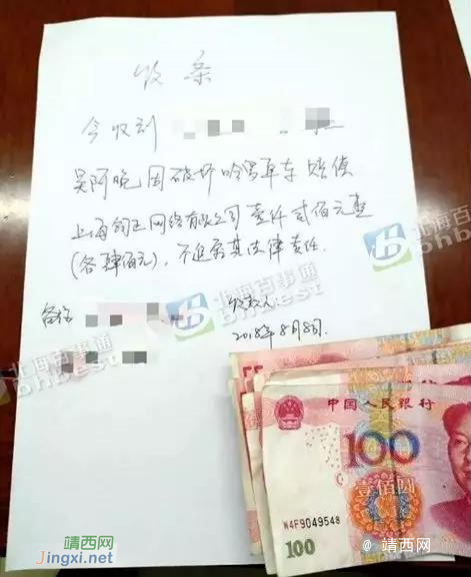 收条
今收到
吴阿晚因破坏哈罗单车赔偿
上海钧正网络有限公司壹仟贰佰元整
(各肆佰元),不追究其法律责任.
备注
收款人
2018年8月8日.
北海百事通
bhbest
北海百事通
bhbest
北海百事通
bhbest
中国人民银行
100
壹佰圆
W4F9049548
100
靖西网
Jingxi.net
@ 靖西网